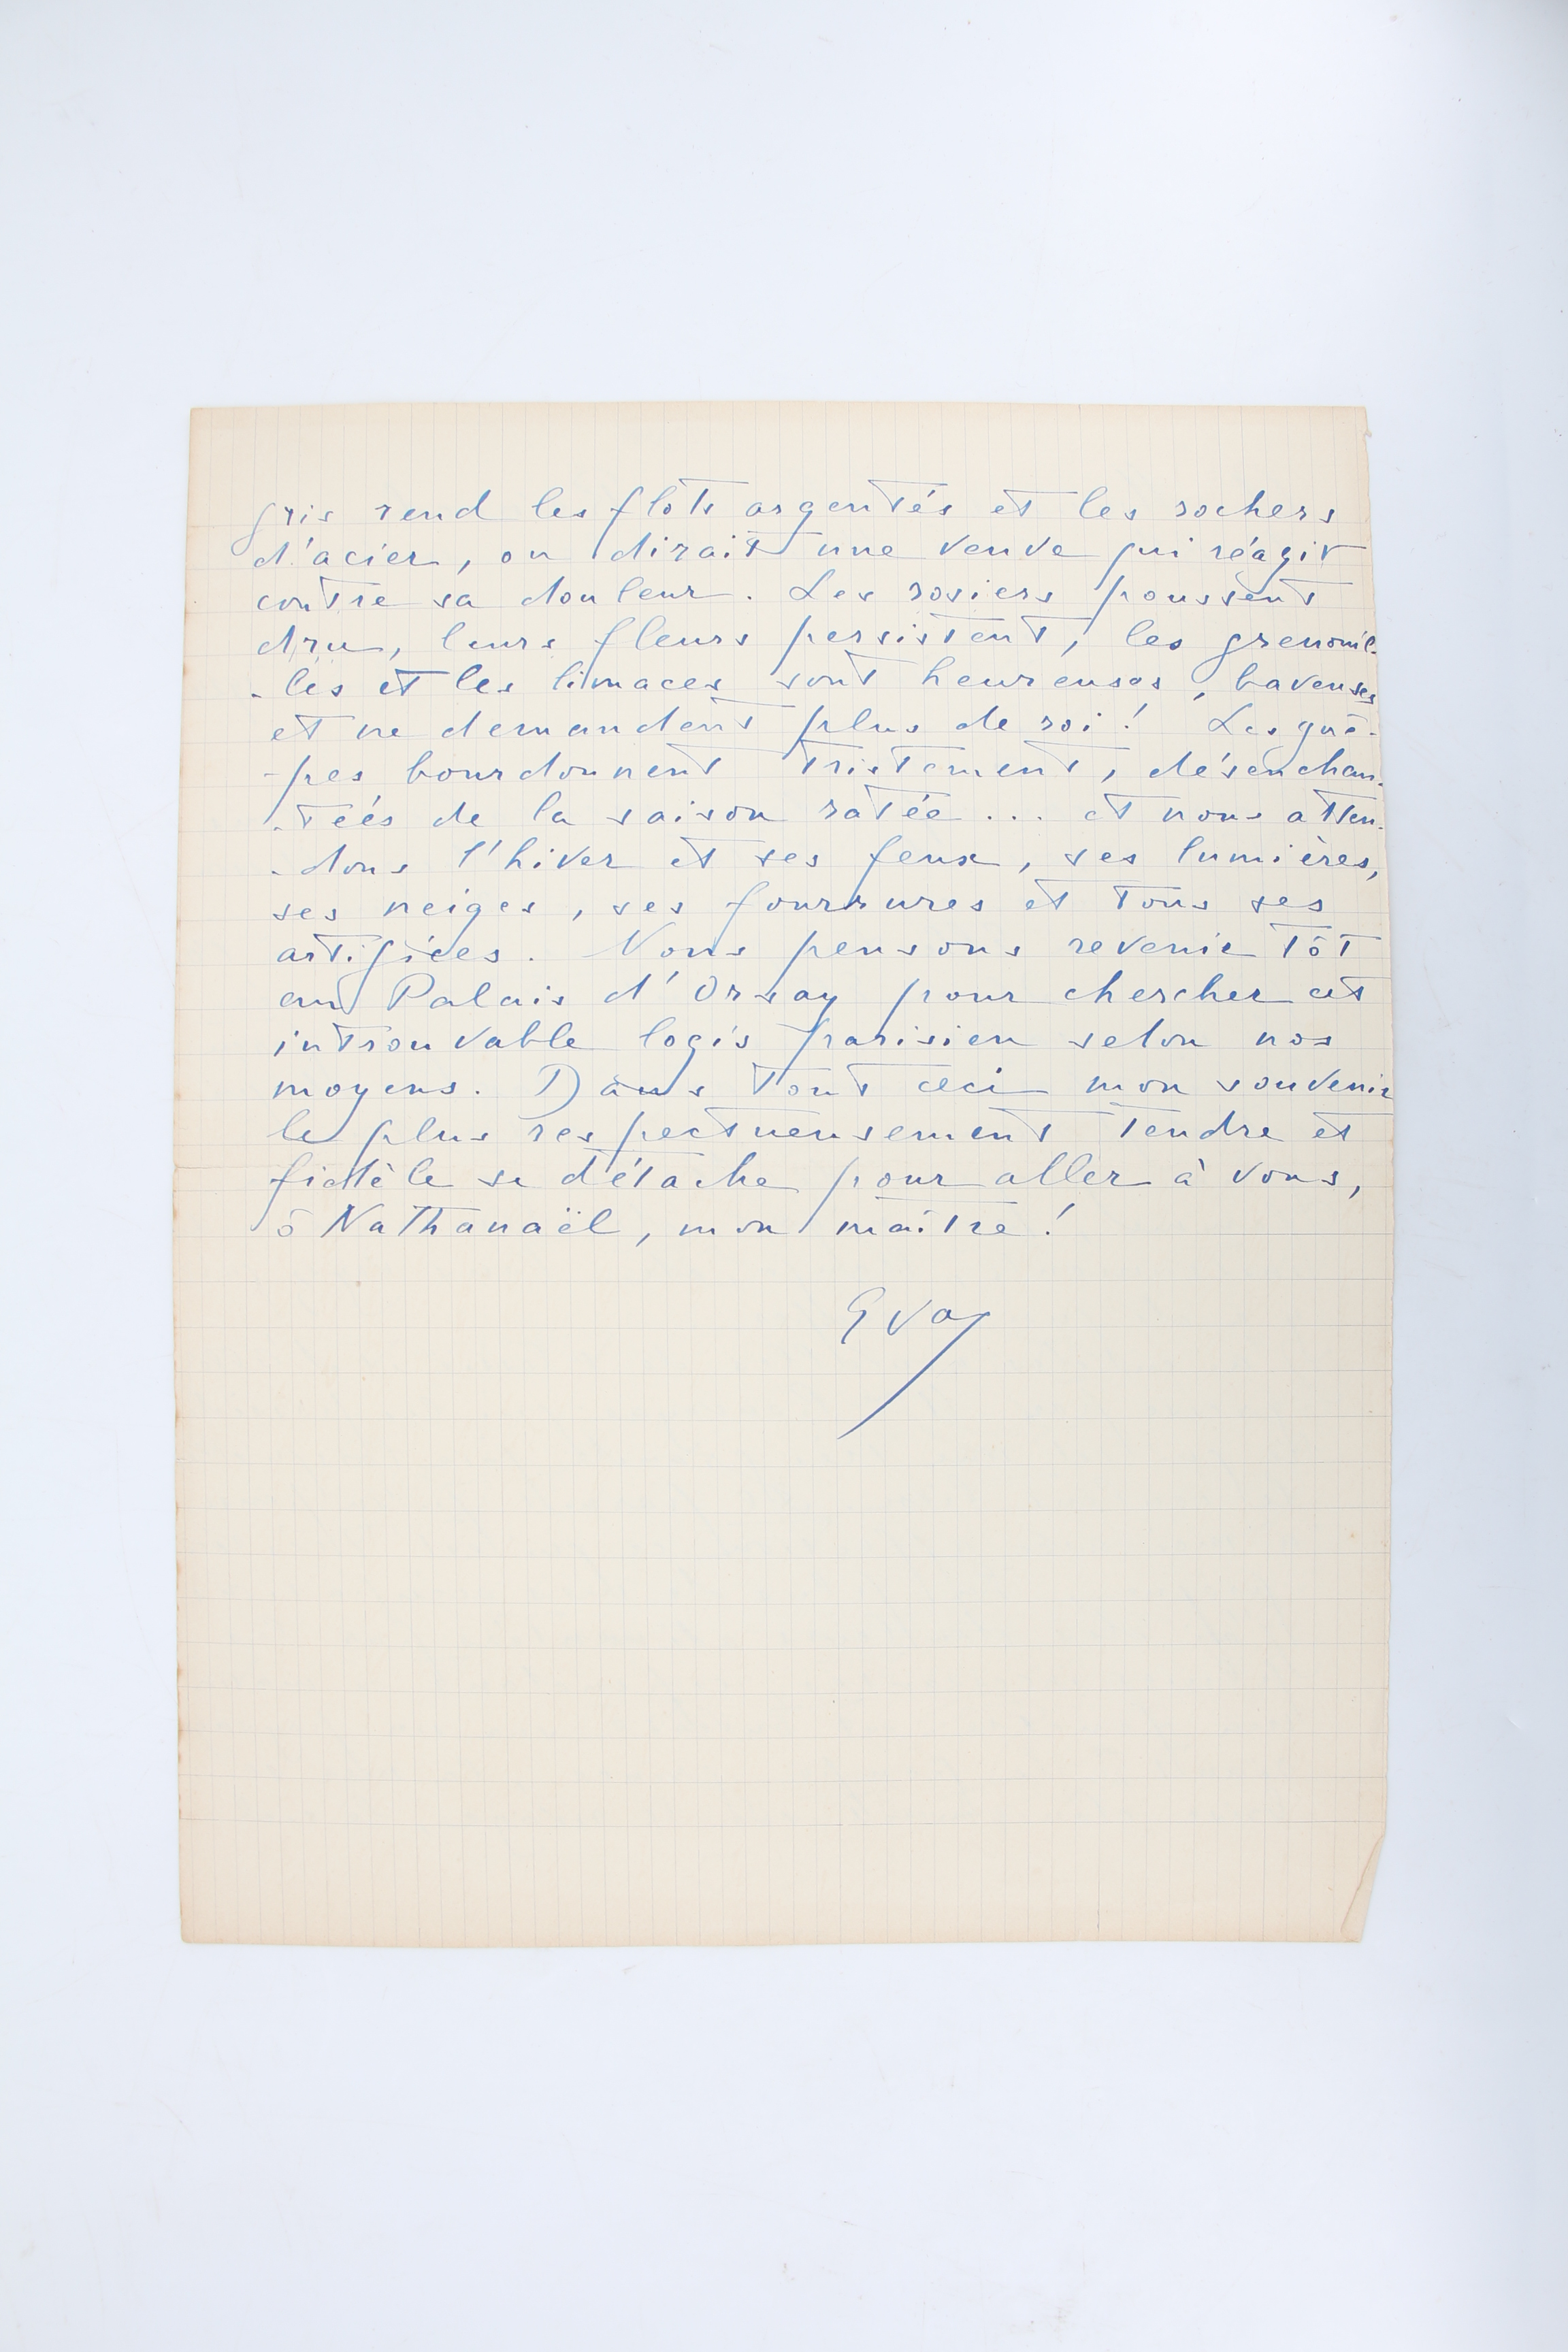 gris rend les flots argentés et les rochers
d'acier, on dirait une veuve qui réagit
contre sa douleur. Les rosiers poussent
dru, leurs fleurs persistent, les grenouil-
-les et les limaces sont heureuses, baveuses
et ne demandent plus de roi ! Les guê-
-pes bourdonnent tristement, désenchan-
-tées de la saison ratée... et nous atten-
-dons l'hiver et ses feux, ses lumières,
ses neiges, ses fourrures et tous ses
artifices. Nous pensons revenir tôt
au Palais d'Orsay pour chercher cet
introuvable logis parisien selon nos
moyens. Dans tout ceci mon souvenir
le plus respectueusement tendre et
fidèle se détache pour aller à vous,
ô Nathanaël, mon maître !
Eva